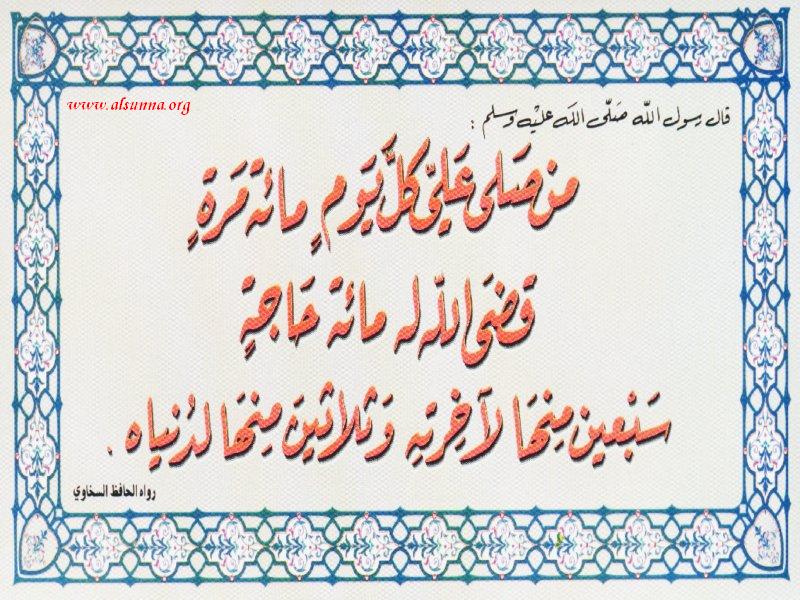 www.alsunna.org
قال رسول الله صَلّى الله عَليْه وَسلم :
من صَلى عَليَّ كلَّ يَوَم ٍ مائة مَرةٍ
قضَى اللّه له مائة حَاجةٍ
سَبْعين مِنهَا لآخِرتِه وَثلاثينَ مِنهَا لدُنياه .
رواه الحافظ السخاوي